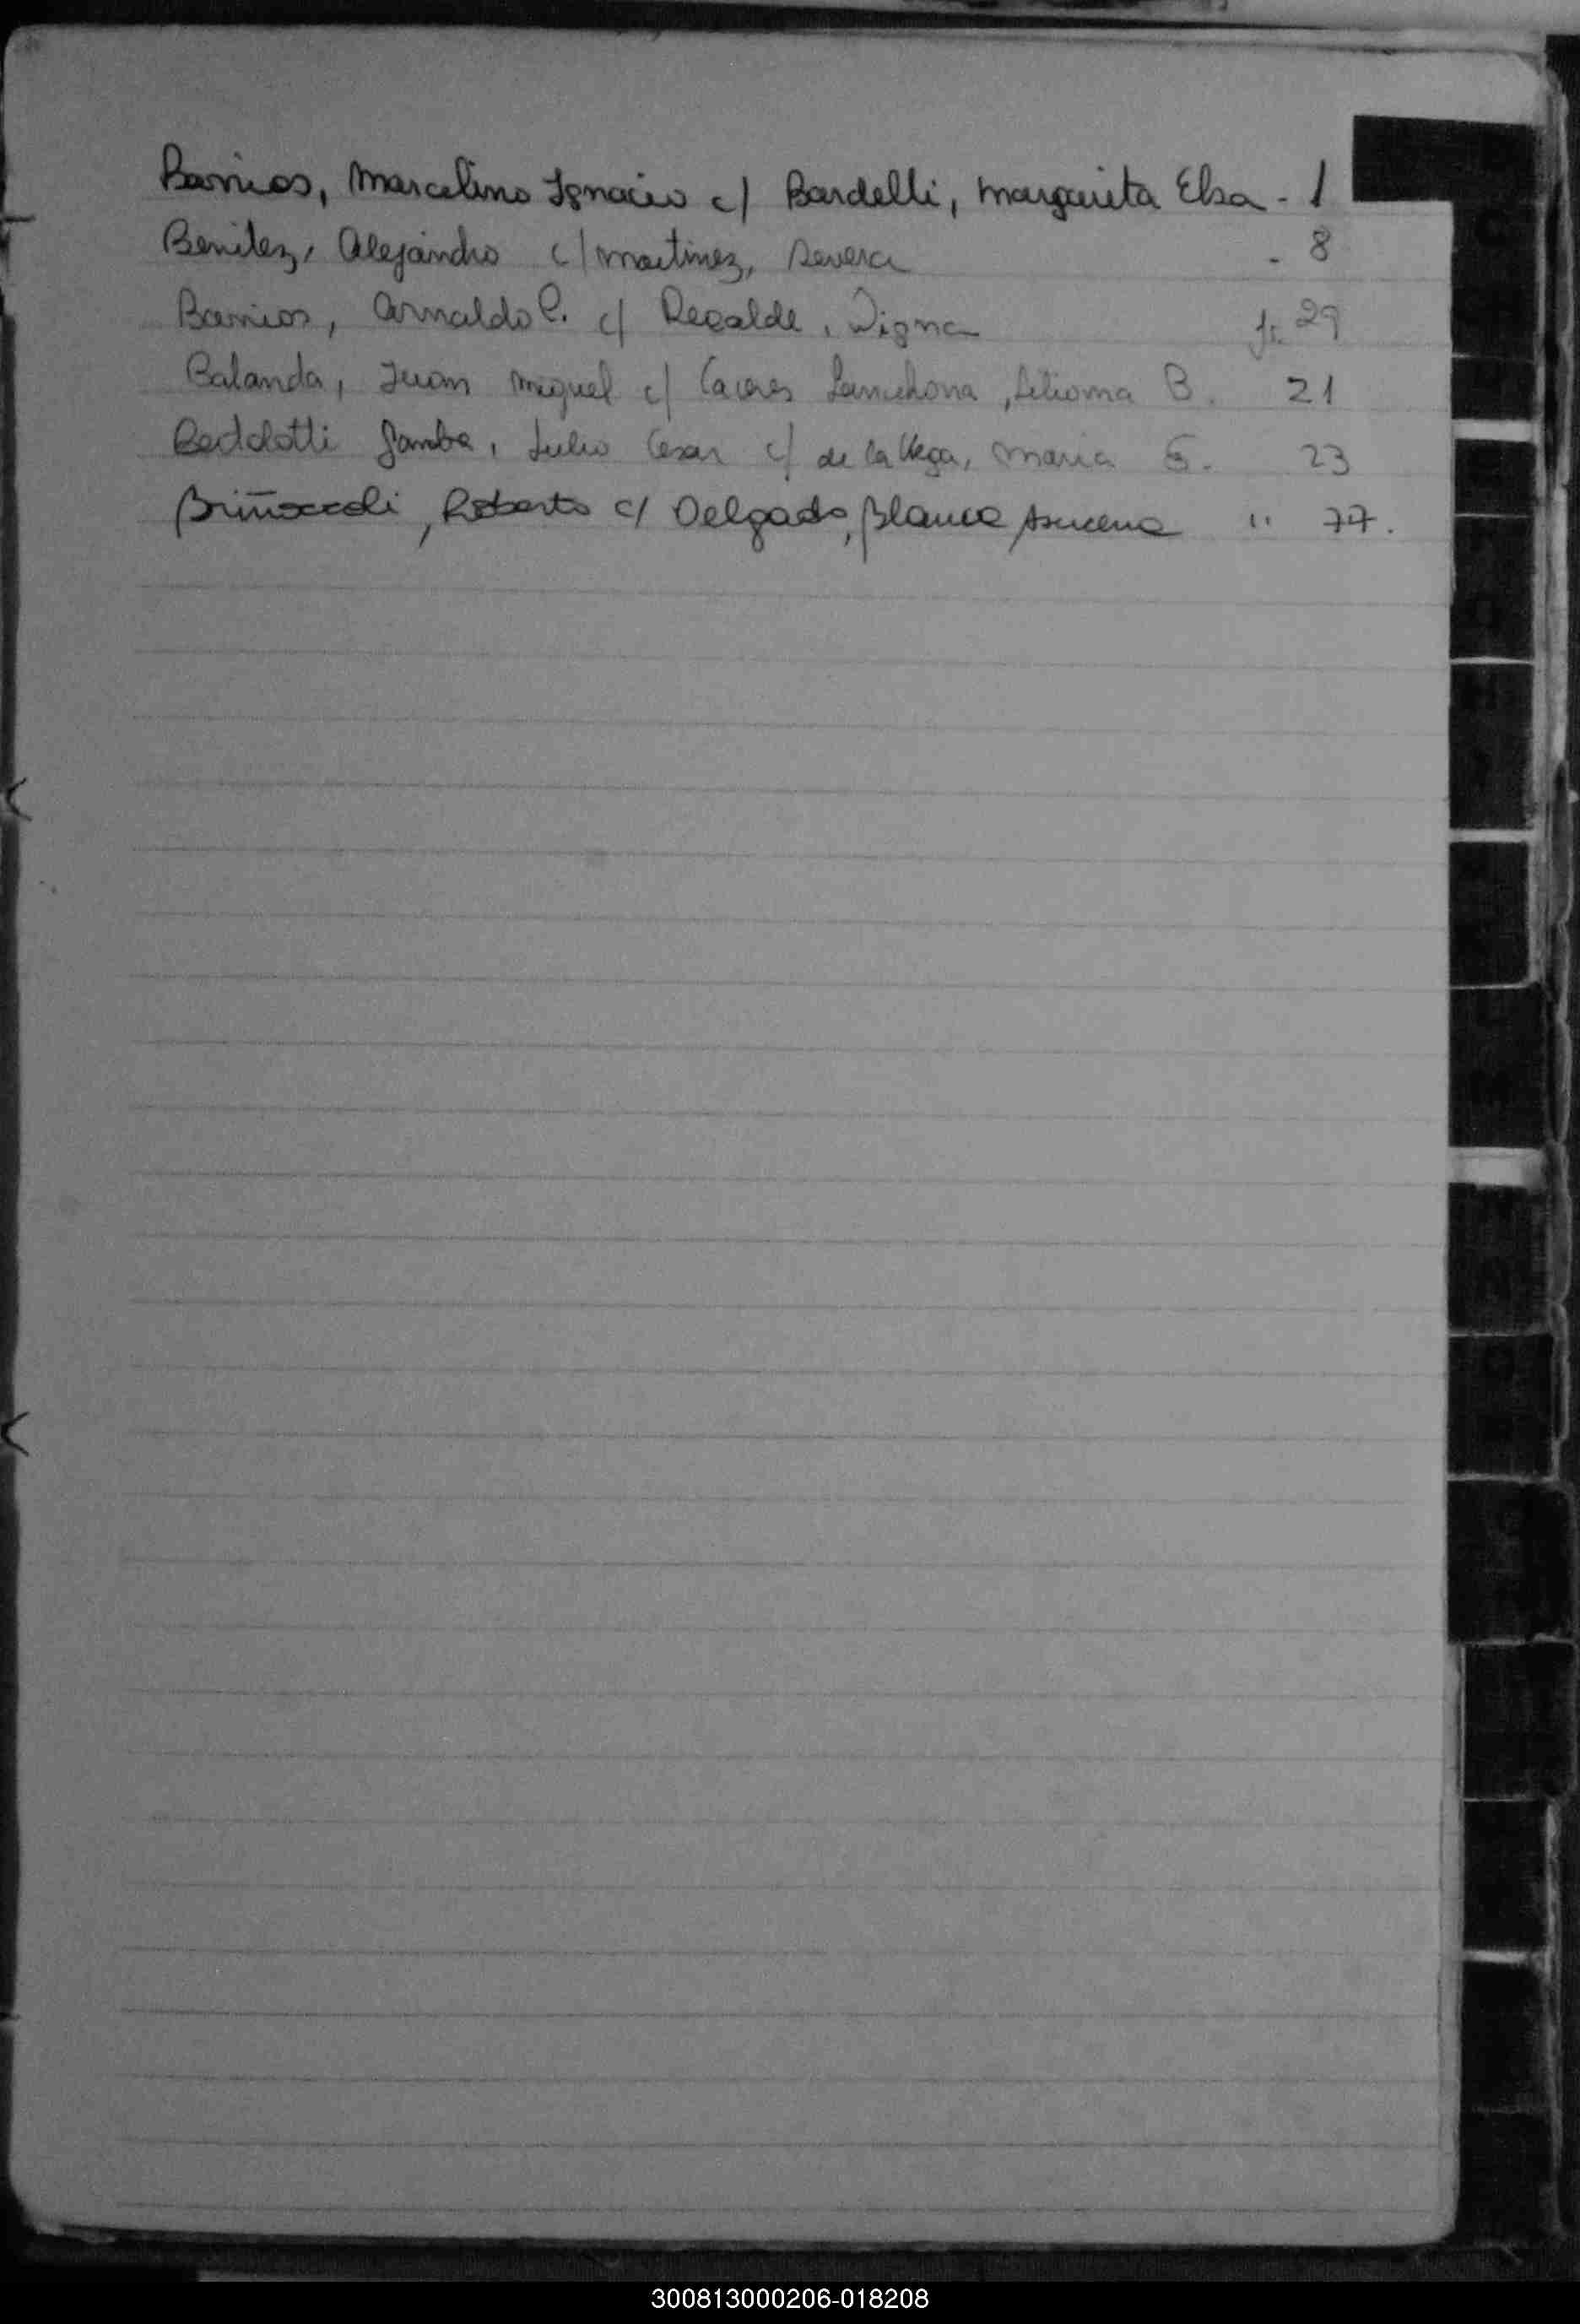 Barrios, Marcelino Ignacio c/ Bardelli, Margarita Elsa - 1
Benitez, Alejandro c/ Martinez, Severa - 8
Barrios, Arnaldo P. c/ Recalde, Digna fs. 29
Balanda, Juan Miguel c/ Caceres, Liliana B. 21
Julio Cesar c/ de la Vega, Maria G. 23
Roberto c/ Delgado, Blanca Asucena " 77.
300813000206-018208